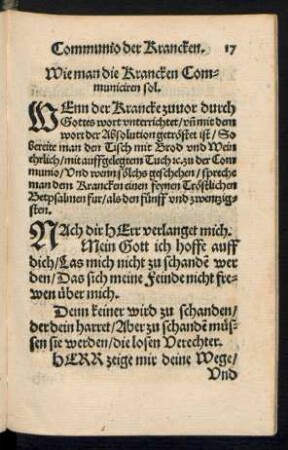 Communio der Krancken. 17
Wie man die Krancken Com-
municiren sol.
WEnn der Krancke zuuor durch
Gottes wort vnterrichtet/ vñ mit dem
wort der Absolution getröstet ist/ So
bereite man den Tisch mit Brod vnd Wein
ehrlich/ mit auffgelegtem Tuch ꝛc. zu der Com
munio/ Vnd wenn sölchs geschehen/ spreche
man dem Krancken einen feynen Tröstlichen
Betpsalmen fur/ als den fünff vnd zwentzig-
sten.
NAch dir HErr verlanget mich.
Mein Gott ich hoffe auff
dich/ Las mich nicht zu schandẽ wer
den/ Das sich meine Feinde nicht fre-
wen über mich.
Denn keiner wird zu schanden/
der dein harret/ Aber zu schandẽ müs-
sen sie werden/ die losen Verechter.
HERR zeige mir deine Wege/
Vnd